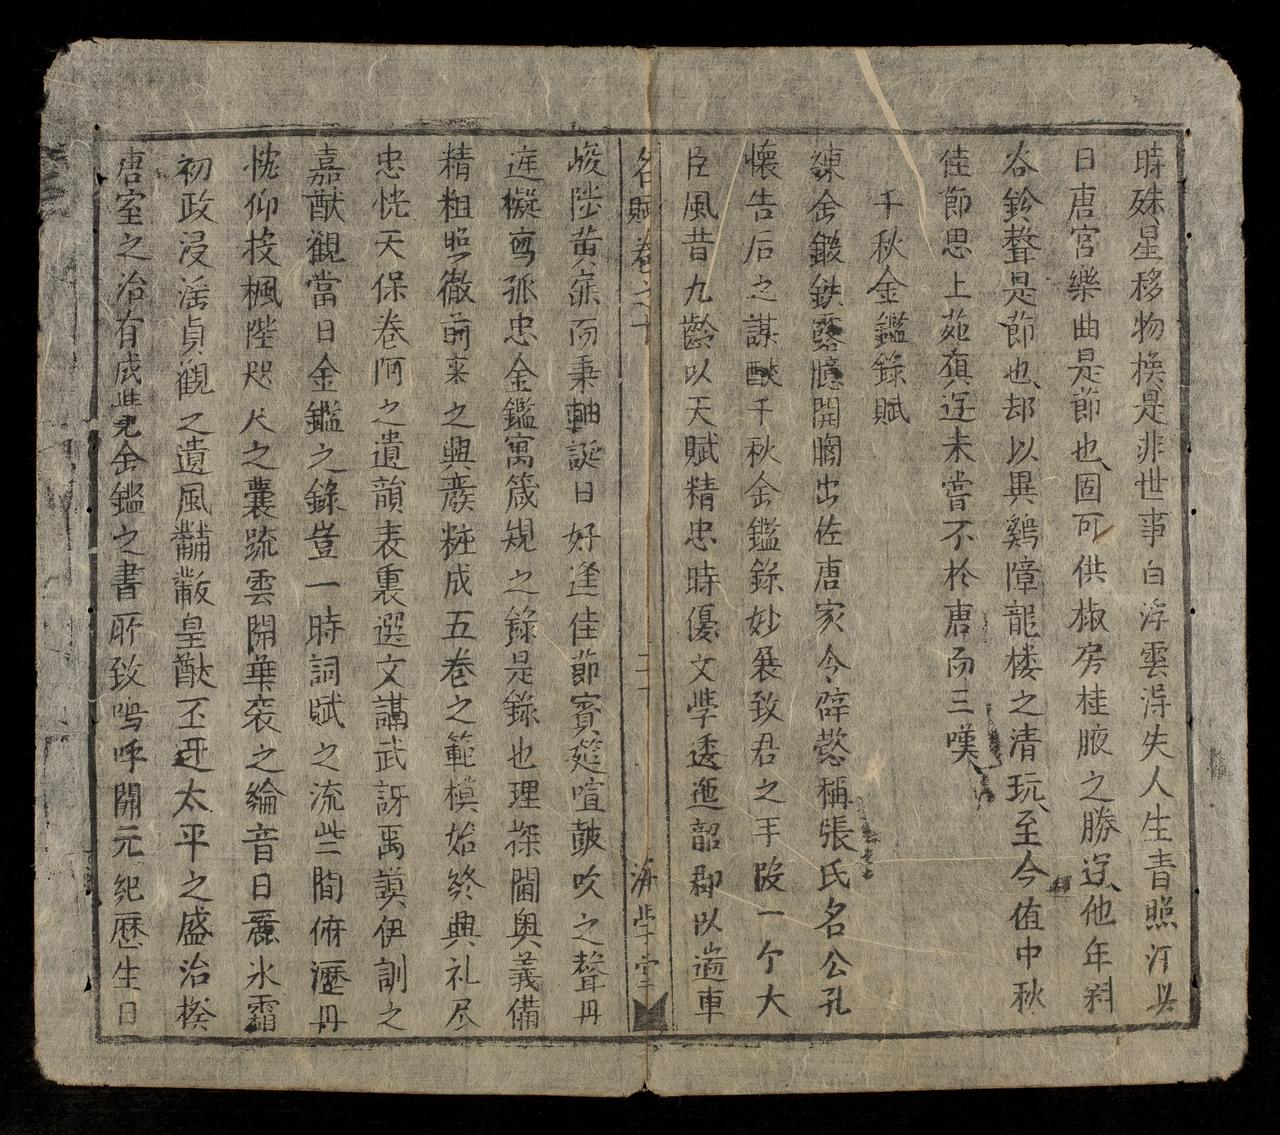 時殊星移物換是非世事白浮雲淂失人生青照汗具
日唐宮樂曲是節也固可供椒房桂腋之勝迳他年料
谷鈴聲是節也却以異鷄障龍楼之清玩至今值中秋
佳節思上苑旗迳未嘗不於唐而三嘆
千秋金鑑錄賦
鍊金鍛鉄露臆開胸出佐唐家令辟懿稱張氏名公孔
懷告后之謀猷千秋金鑑錄妙展致君之手段一个大
臣風昔九齡以天賦精忠時優文學逶迤韶郡以啚車
名賦卷之十 二十 海學堂
峻陟黃扉而秉軸誕日好逢佳節賓筵喧皷吹之聲丹
遅擬寫孤忠金鑑寓箴規之錄是錄也理探閫奥義備
精粗照徹前来之興廢粧成五巻之範模始終典礼尽
忠恍天保卷阿之遺韻表裏選文講武訝禹謨伊訓之
嘉猷觀當日金鑑之錄豈一時詞賦之流些間俯瀝丹
忱仰投楓陛咫尺之囊疏雲開華衮之綸音日麗氷霜
初政浸滛貞觀之遺風黼黻皇猷丕迓太平之盛治揆
唐室之治有成覺金鑑之書所致嗚呼開元紀歷生日